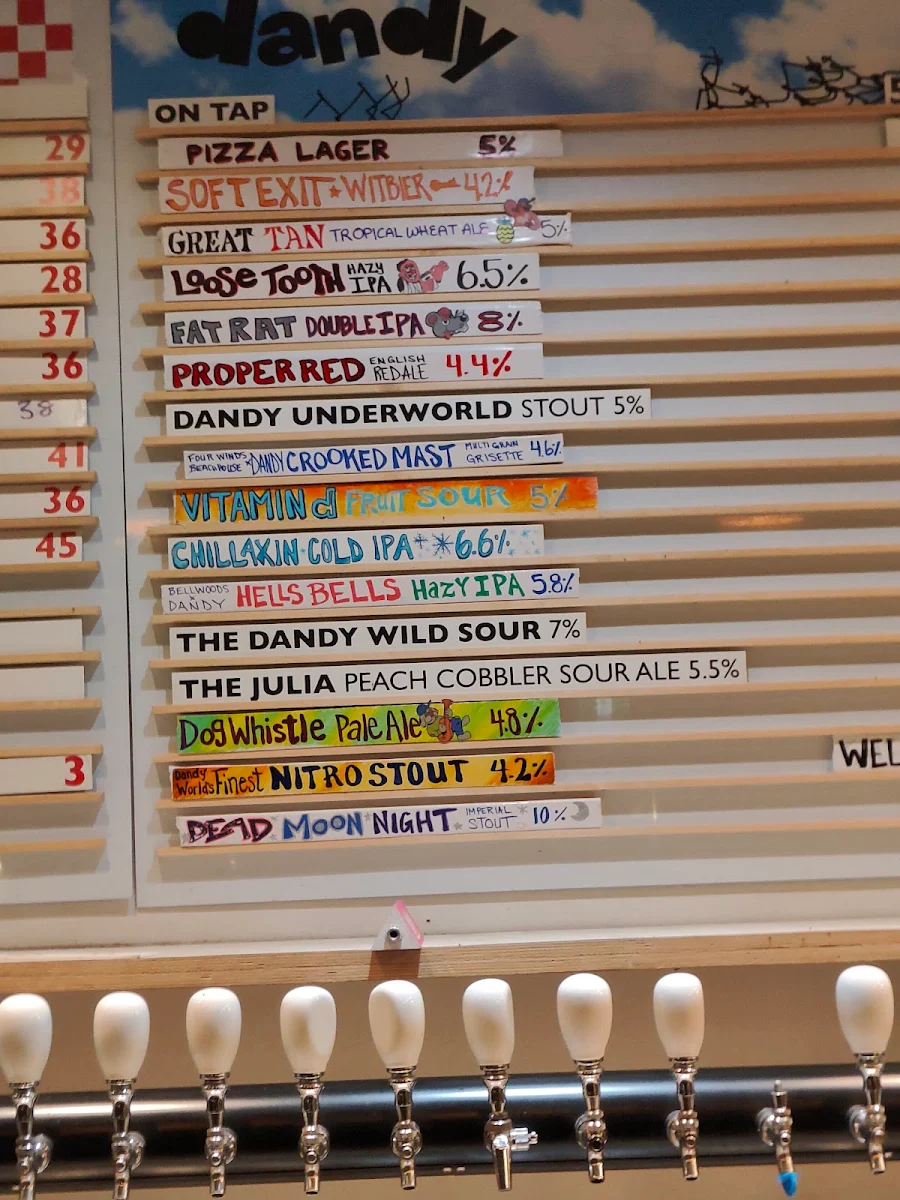 dandy
ON TAP
29
38
36
28
37
36
38
41
36
45
3
PIZZA LAGER 5%
SOFT EXIT WITBIER 4.2%
GREAT TAN TROPICAL WHEAT ALE 5%
LOOSE TOOTH HAZY IPA 6.5%
FAT RAT DOUBLE IPA 8%
PROPER RED ENGLISH RED ALE 4.4%
DANDY UNDERWORLD STOUT 5%
FOUR WINDS BEACHHOUSE x DANDY CROOKED MAST MULTIGRAIN GRISETTE 4.6%
VITAMIN d FRUIT SOUR 5%
CHILLAXIN COLD IPA 6.6%
BELLWOODS x DANDY HELLS BELLS HAZY IPA 5.8%
THE DANDY WILD SOUR 7%
THE JULIA PEACH COBBLER SOUR ALE 5.5%
Dog Whistle Pale Ale 4.8%
Dandy World's Finest NITRO STOUT 4.2%
DEAD MOON NIGHT IMPERIAL STOUT 10%
WEL